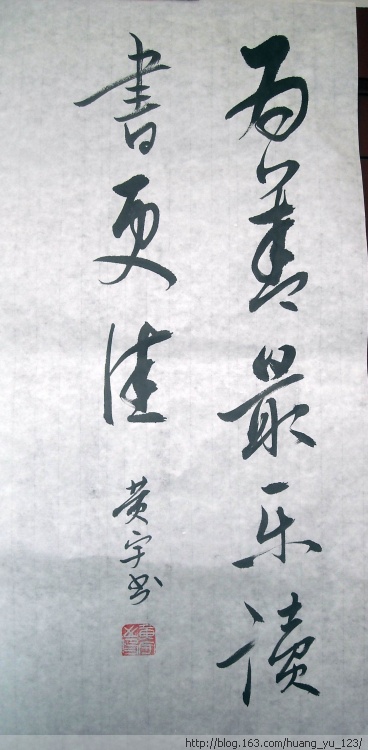 为善最乐读
書更佳
黄宇书
http://blog.163.com/huang_yu_123/